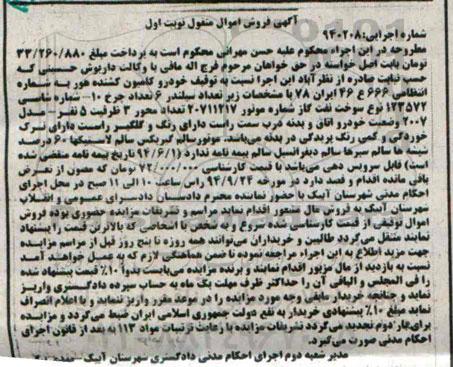 آگهی فروش اموال منقول نوبت اول
شماره اجرایی: ۹۴۰۲۰۸
مطروحه در این اجراء محکوم علیه حسن مهرانی محکوم است به پرداخت مبلغ ۳۳/۲۶۰/۸۸۰
تومان بابت اصل خواسته در حق خواهان مرحوم فرج اله مافی با وکالت داریوش حسینی که
حسب نیابت صادره از نظرآباد این اجرا نسبت به توقیف خودرو کامیون کشنده هور به شماره
انتظامی ۶۶۶ ع ۴۶ ایران ۷۸ با مشخصات زیر تعداد سیلندر ۶ تعداد چرخ ۱۰ شماره شاسی
۱۲۳۵۷۲ نوع سوخت نفت گاز شماره موتور ۲۰۷۱۱۲۱۷ تعداد محور ۳ ظرفیت ۵ نفر مدل
۲۰۰۷ وضعیت خودرو اتاق و بدنه درب سمت راست دارای رنگ و گلگیر راست دارای ترک
خوردگی و کمی رنگ پریدگی در بدنه می‌باشد. موتور سالم گیربکس سالم لاستیکها ۶۰ درصد
شیشه ها سالم سپرها سالم دیفرانسیل سالم بیمه نامه ندارد (۹۴/۶/۱ تاریخ بیمه نامه منقضی شده
است) قابل سرویس دهی می‌باشد با قیمت کارشناسی ۷۲/۰۰۰/۰۰۰ تومان که مصون از تعرض
باقی مانده اقدام و قصد دارد در مورخه ۹۴/۹/۲۴ راس ساعت ۱۰ الی ۱۱ صبح در محل اجرای
احکام مدنی شهرستان آبیک با حضور نماینده محترم دادستان دادسرای عمومی و انقلاب
شهرستان آبیک به فروش مال مشعور اقدام نماید مراسم و تشریفات مزایده حضوری بوده فروش
اموال توقیفی از قیمت کارشناسی شده شروع و به شخص یا اشخاصی که بالاترین قیمت را پیشنهاد
نمایند منتقل می‌گردد طالبین و خریداران می‌توانند همه روزه تا پنج روز قبل از مراسم مزایده
جهت مزید اطلاع به این اجراء مراجعه نموده تا ضمن هماهنگی لازم که به عمل خواهند آمد
نسبت به بازدید از مال مزبور اقدام نمایند و برنده مزایده می‌بایست بدواً ۱۰٪ قیمت پیشنهاد شده
را فی المجلس و الباقی آن را حداکثر ظرف مهلت یک ماه به حساب سپرده دادگستری واریز
نماید و چنانچه خریدار مابقی وجه مورد مزایده را در موعد مقرر واریز ننماید و یا اعلام انصراف
نماید مبلغ ۱۰٪ پیشنهادی خریدار به نفع دولت جمهوری اسلامی ایران ضبط می‌گردد و مزایده
برای بار دوم تجدید می‌گردد تشریفات مزایده با رعایت ترتیبات مواد ۱۱۳ به بعد از قانون اجرای
احکام مدنی صورت می‌گیرد.
مدیر شعبه دوم اجرای احکام مدنی دادگستری شهرستان آبیک